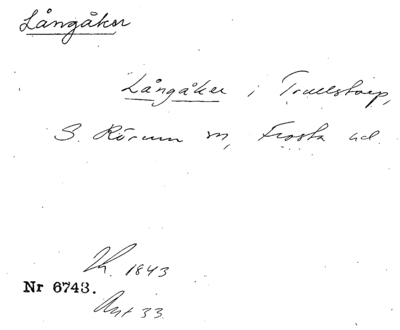 Långåker
Långåker i Truelstorp,
S. Rörum sn, Frosta hd.
Th. 1843
Nr 6743.
Ant 33.